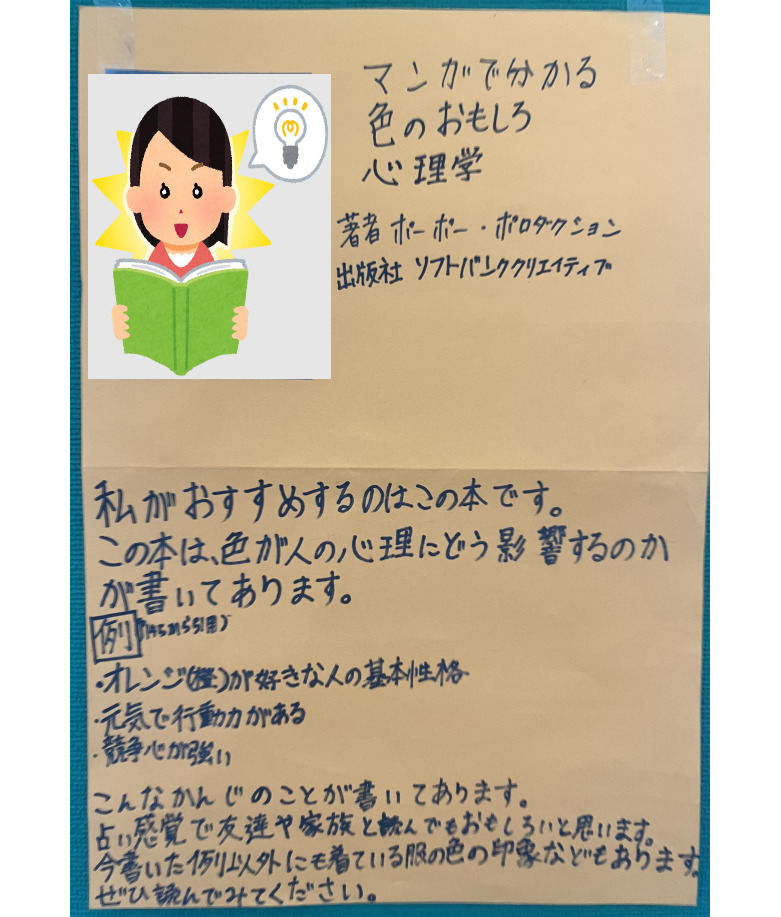 マンガで分かる
色のおもしろ
心理学
著者 ポーポー・ポロダクション
出版社 ソフトバンククリエイティブ
私がおすすめするのはこの本です。
この本は、色が人の心理にどう影響するのか
が書いてあります。
例
・オレンジ(橙)が好きな人の基本性格
・元気で行動力がある
・競争心が強い
こんなかんじのことが書いてあります。
占い感覚で友達や家族と読んでもおもしろいと思います。
今書いた例以外にも着ている服の色の印象などもあります。
ぜひ読んでみてください。